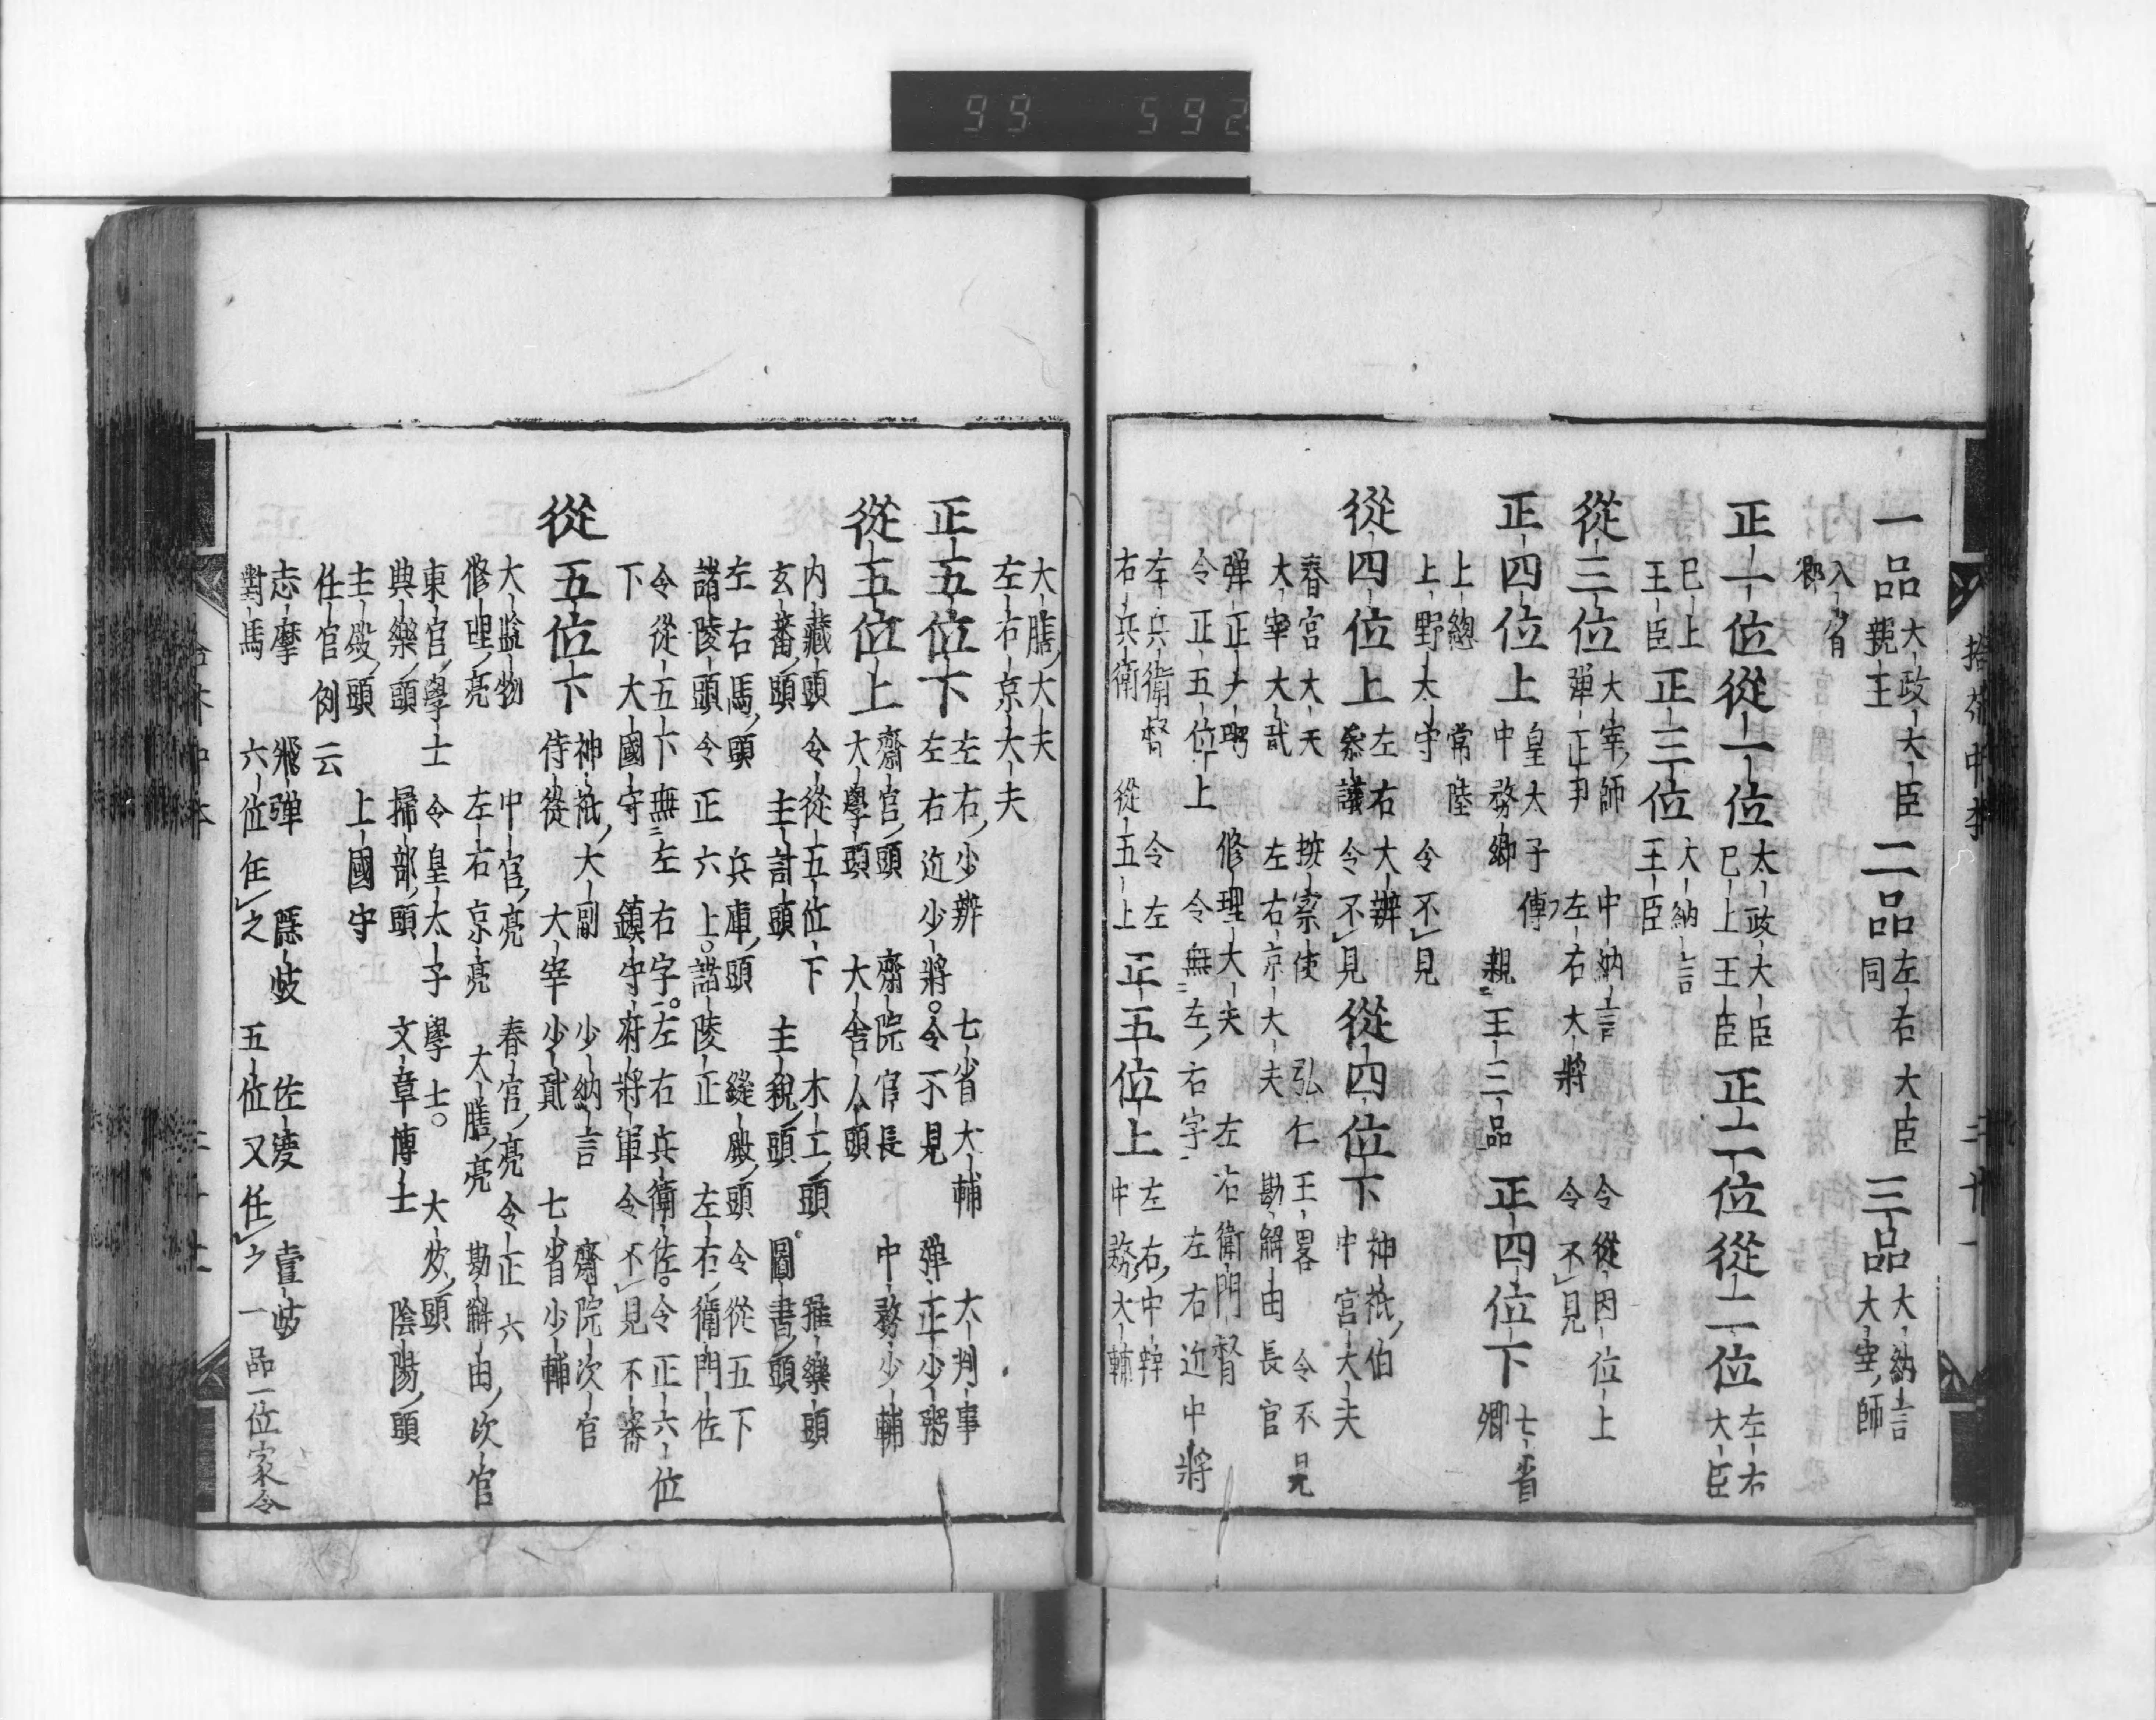 99 592
一品 大政大臣 二品 左右大臣 三品 大納言
親王 同 大宰師
入省
正一位從一位 太政大臣 正二位從二位 左右
已上王臣 大臣
已上 正三位 大納言
王臣 王臣
從三位 大宰師 中納言 令從四位上
彈正尹 左右大將 令不見
正四位上 皇太子傅 親王三品 正四位下 七省
中務卿 卿
上總 常陸 令不見
上野太守
從四位上 左右大辨 從四位下 神祇伯
參議 令不見 中宮大夫
春宮大夫 按察使 弘仁 王畧 令不見
大宰大貳 左右京大夫 勘解由長官
彈正大弼 修理大夫 左右衛門督
令正五位上 令無左右字 左右近中將
左兵衛督 令左 正五位上 左右中辨
右兵衛 從五上 中務大輔
大膳大夫
左右京大夫
正五位下 左右少辨 七省大輔 大判事
左右近少將。令不見 彈正少弼
從五位上 齋宮頭 齋院官長 中務少輔
大學頭 大舍人頭
內藏頭 令從五位下 木工頭 雅樂頭
玄蕃頭 主計頭 主稅頭 圖書頭
左右馬頭 兵庫頭 縫殿頭 令從五下
諸陵頭 令正六上。諸陵正 左右衛門佐
令從五下無左右字。左右兵衛佐。令正六位
下 大國守 鎮守府將軍 令不見 不審
從五位下 神祇大副 少納言 齋院次官
侍從 大宰少貳 七省少輔
大監物 中宮亮 春宮亮 令正六
修理亮 左右京亮 大膳亮 勘解由次官
東宮學士 令皇太子學士。 大炊頭
典樂頭 掃部頭 文章博士 陰陽頭
主殿頭 上國守
任官例云
志摩 飛彈 隱岐 佐渡 壹岐
對馬 六位任之 五位又任之 一品一位家令